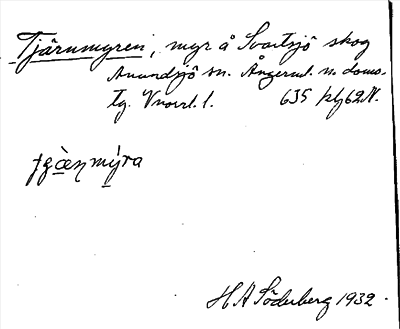 Tjärnmyren, myr å Svartsjö skog
Anundsjö sn. Ångerml. n. doms.
tg. Vnorrl. l. 635
myra
H A Söderberg 1932.